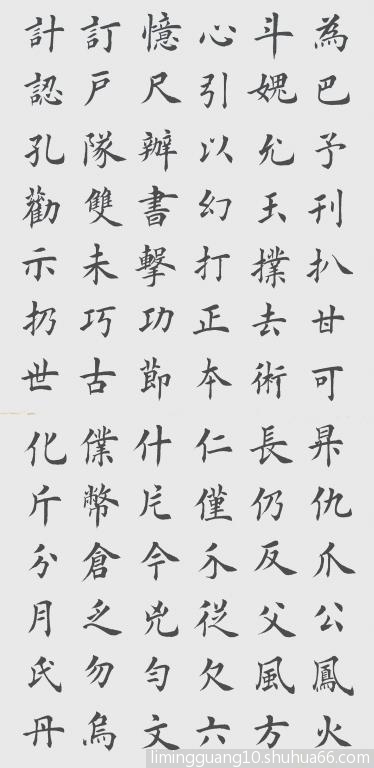 計訂憶心斗為
認戶尺引媿巴
孔隊辦以允予
勸雙書幻玉刊
示未擊打撲扒
扔巧功正去甘
世古節本術可
化僕什仁長昇
斤幣片僅仍仇
分倉今介反爪
月乏兇從父公
氏勿勻欠風鳳
丹烏文六方火
limingguang10.shuhua66.com